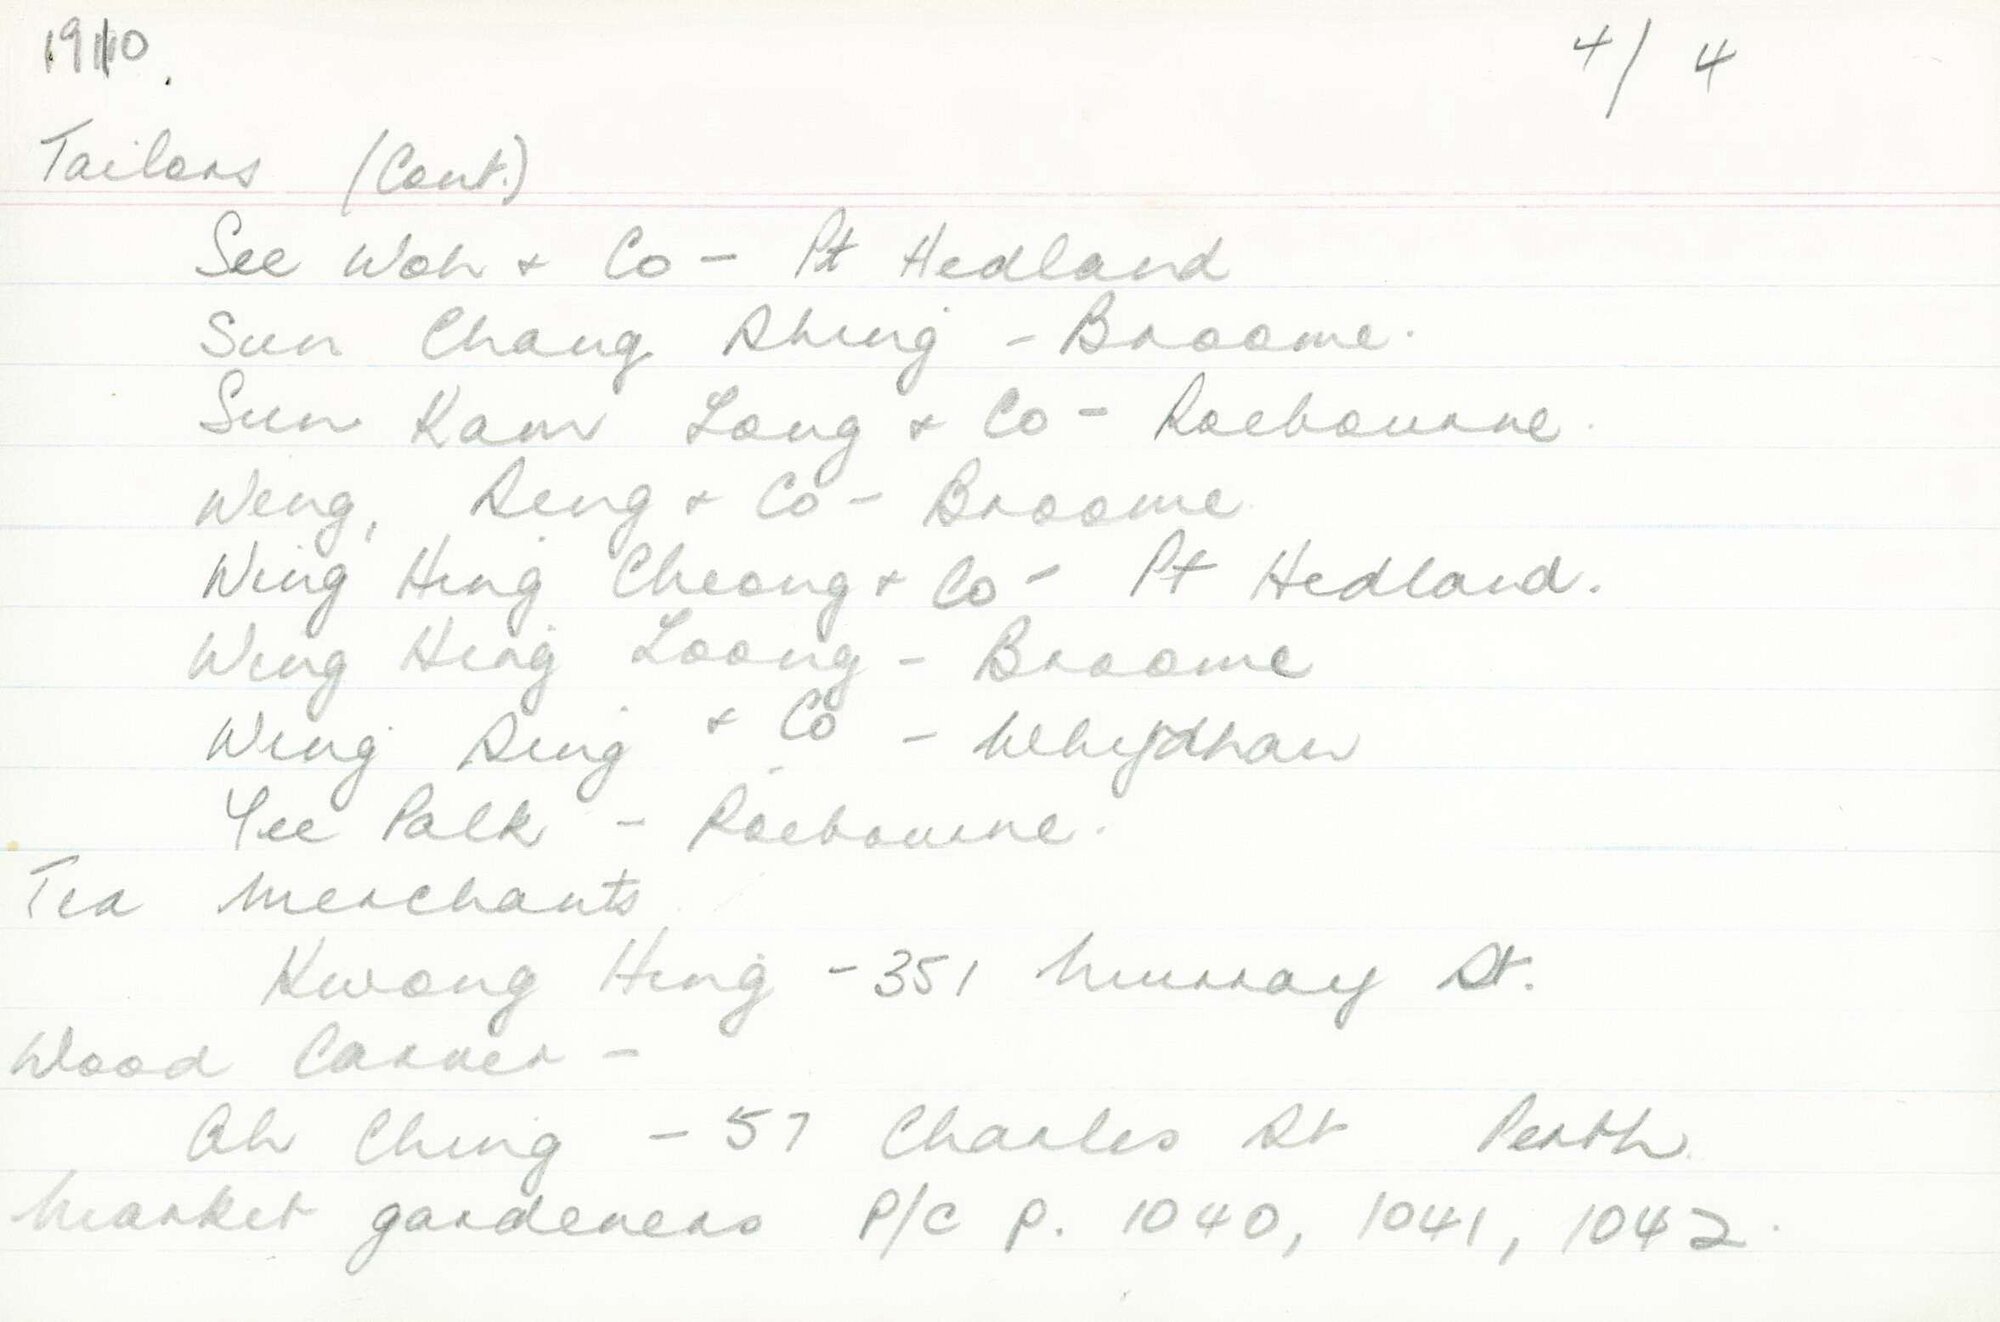 1910. 4/4
Tailors (Cont.)
See Woh + Co - Pt Hedland
Sun Chang Shing - Broome.
Sun Kam Long + Co - Roebourne.
Weng, Seng + Co - Broome
Wing Hing Cheong + Co - Pt Hedland.
Wing Hing Loong - Broome
Wing Sing + Co - Whydham
Yee Palk - Roebourne.
Tea Merchants
Kwong Hing - 351 Murray St.
Wood Carver -
Ah Ching - 57 Charles St Perth.
Market gardeners P/C p. 1040, 1041, 1042.